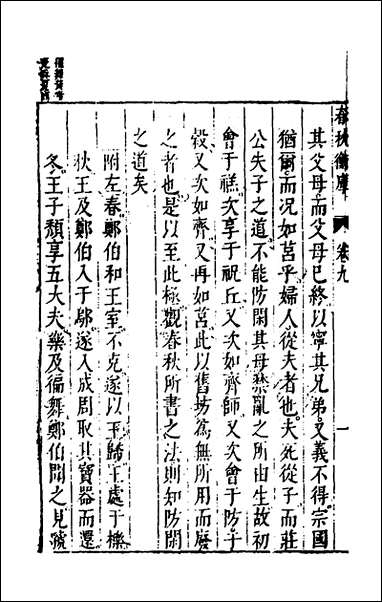 春秋衡庫 卷九 一
其父母而父母已終以寧其兄弟又義不得宗國
猶爾而况如莒乎婦人從夫者也夫死從子而莊
公失子之道不能防閑其母禁亂之所由生故初
會于禚次享于祝丘又次如齊師又次會于防于
穀又次如齊又再如莒此以舊坊為無所用而廢
之者也是以至此極觀春秋所書之法則知防閑
之道矣
附左春鄭伯和王室不克遂以王歸王處于櫟
秋王及鄭伯入于鄔遂入成周取其寶器而還
冬王子頽享五大夫樂及徧舞鄭伯聞之見虢